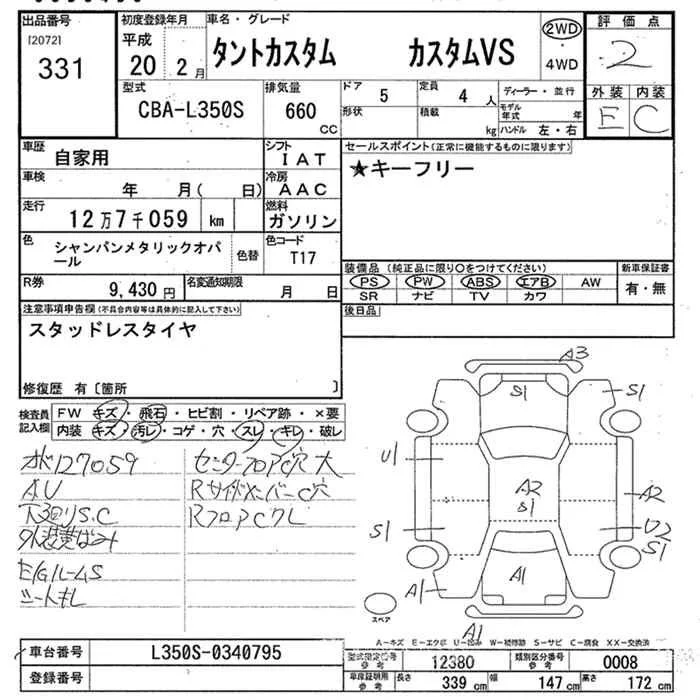 出品番号 初度登録年月 車名・グレード 評価点
[2072] 平成 タントカスタム カスタムVS 2WD 2
331 20 2月 4WD
型式 排気量 ドア 5 定員 4人 ディーラー・並行 外装 内装
CBA-L350S 660 cc 形状 積載 kg モデル年式 年 E C
ハンドル 左・右
車歴 自家用 シフト IAT セールスポイント(正常に機能するものに限ります)
車検 年 月( 日) 冷房 AAC ★キーフリー
走行 12万7千059 km 燃料 ガソリン
色 シャンパンメタリックオパール 色替 色コード T17
装備品(純正品に限り○をつけてください) 新車保証書
R券 9,430円 名変通知期限 月 日 PS PW ABS エアB AW 有・無
SR ナビ TV カワ
注意事項申告欄(不具合内容等は具体的に記入して下さい) 後日品
スタッドレスタイヤ
修復歴 有〔箇所 〕
検査員記入欄 FW キズ・飛石・ヒビ割・リペア跡・×要
内装 キズ・汚レ・コゲ・穴・スレ・キレ・破レ
127059 センターフロアC穴 大
AU RサイドメンバーC穴
下回りS.C RフロアCクレ
外装黄ばみ
E/GルームS
シートキレ
A3
S1 S1
U1
A2 A2
S1
S1 U2
S1
A1 A1
A1
スペア
A-キズ E-エクボ U-凹み W-補修跡 S-サビ C-腐食 XX-交換済
車台番号 L350S-0340795 型式指定番号 参考 12380 類別区分番号 参考 0008
登録番号 車庫証明用 参考 長さ 339cm 幅 147cm 高さ 172cm